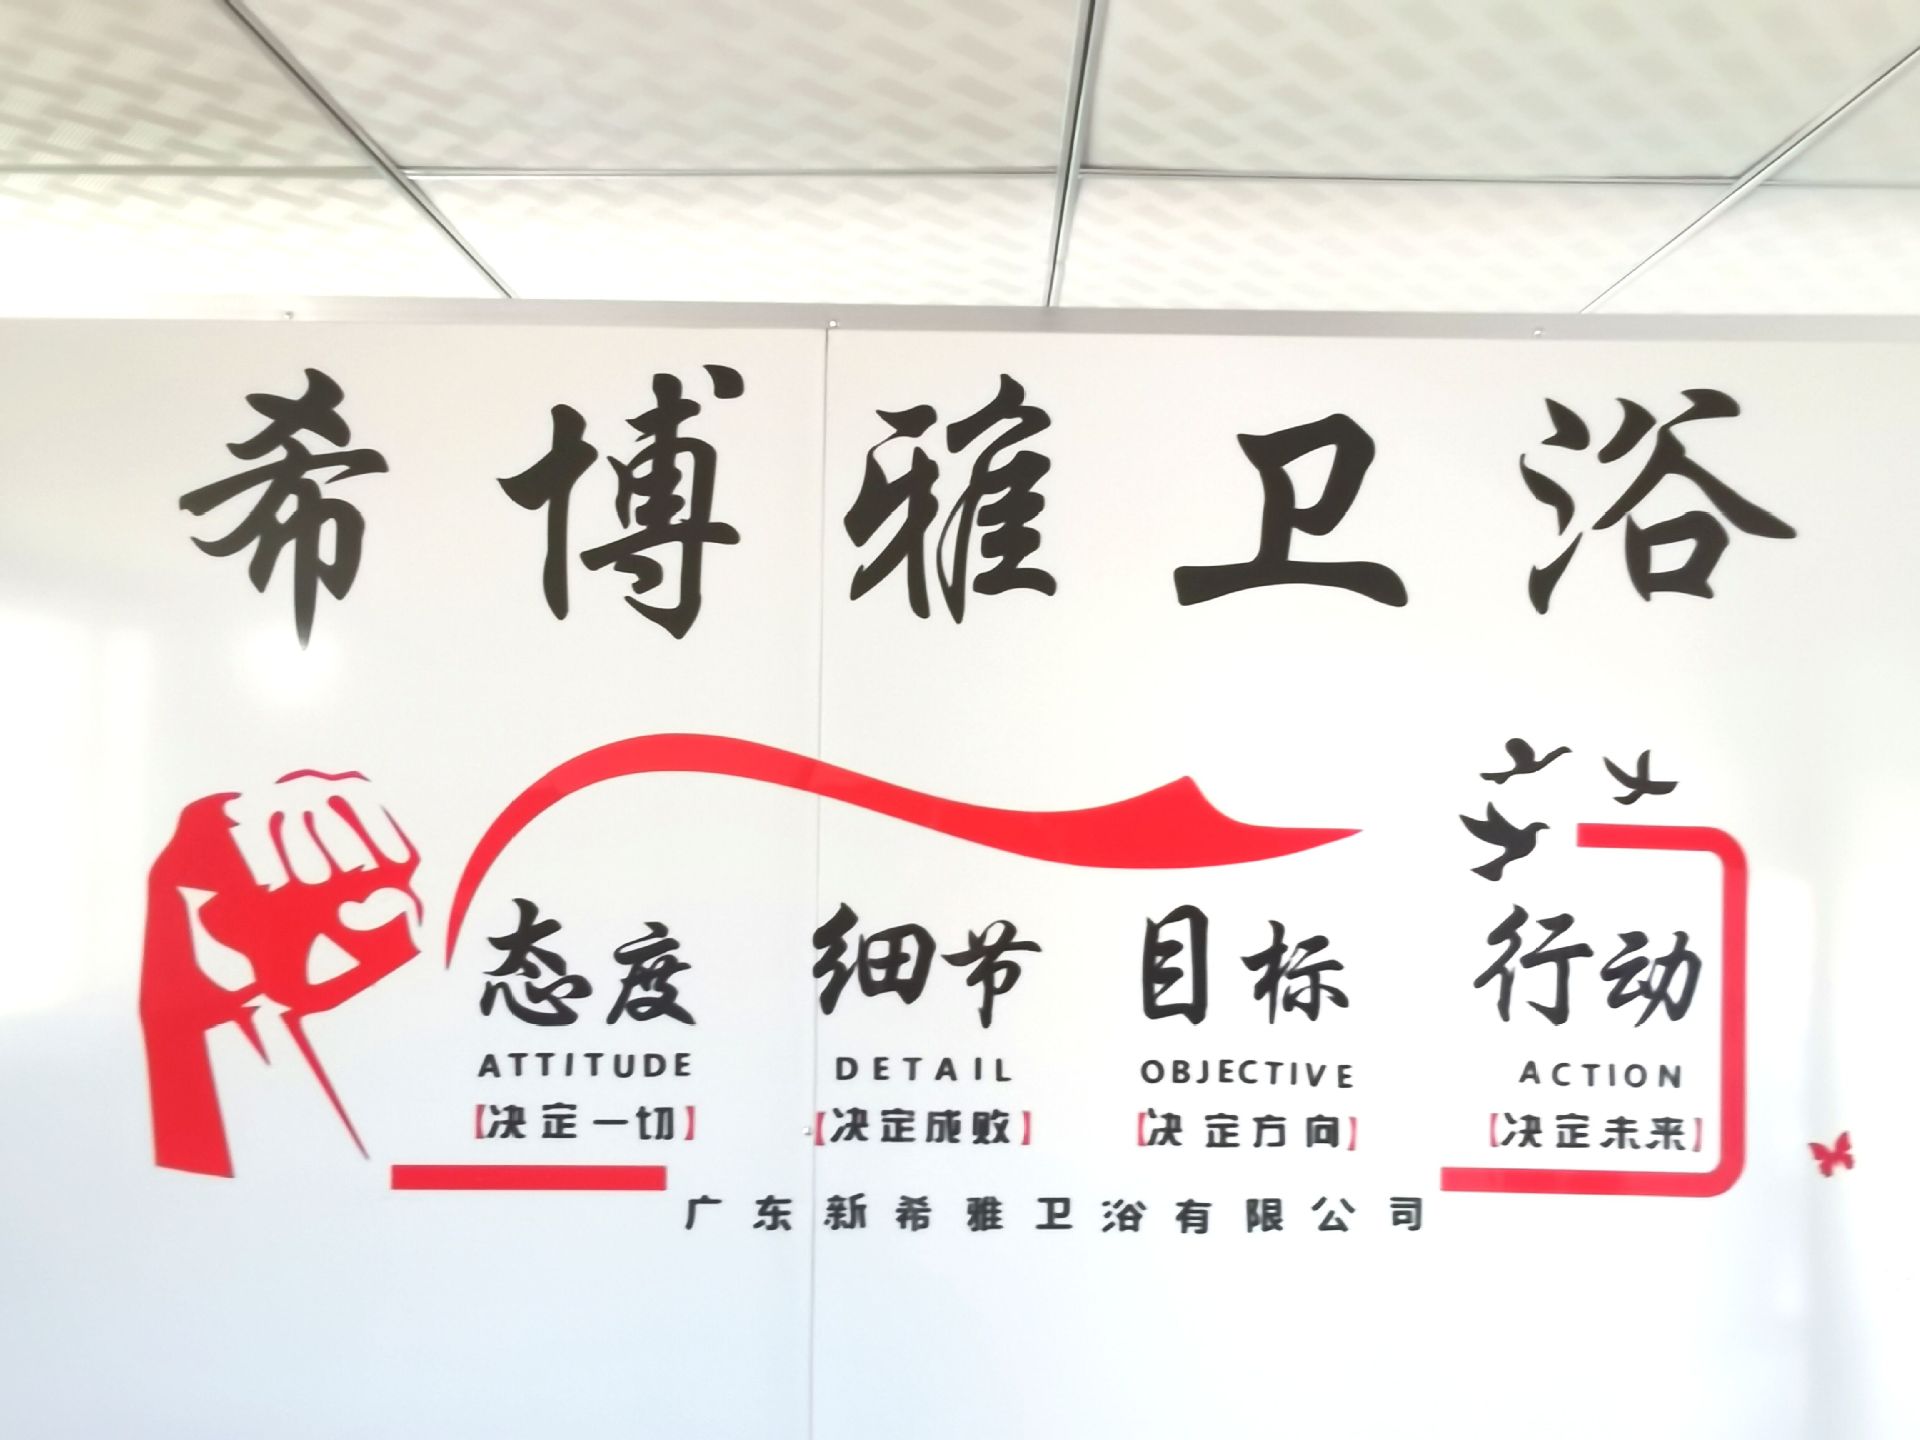 希博雅卫浴
态度 细节 目标 行动
ATTITUDE DETAIL OBJECTIVE ACTION
【决定一切】 【决定成败】 【决定方向】 【决定未来】
广东新希雅卫浴有限公司